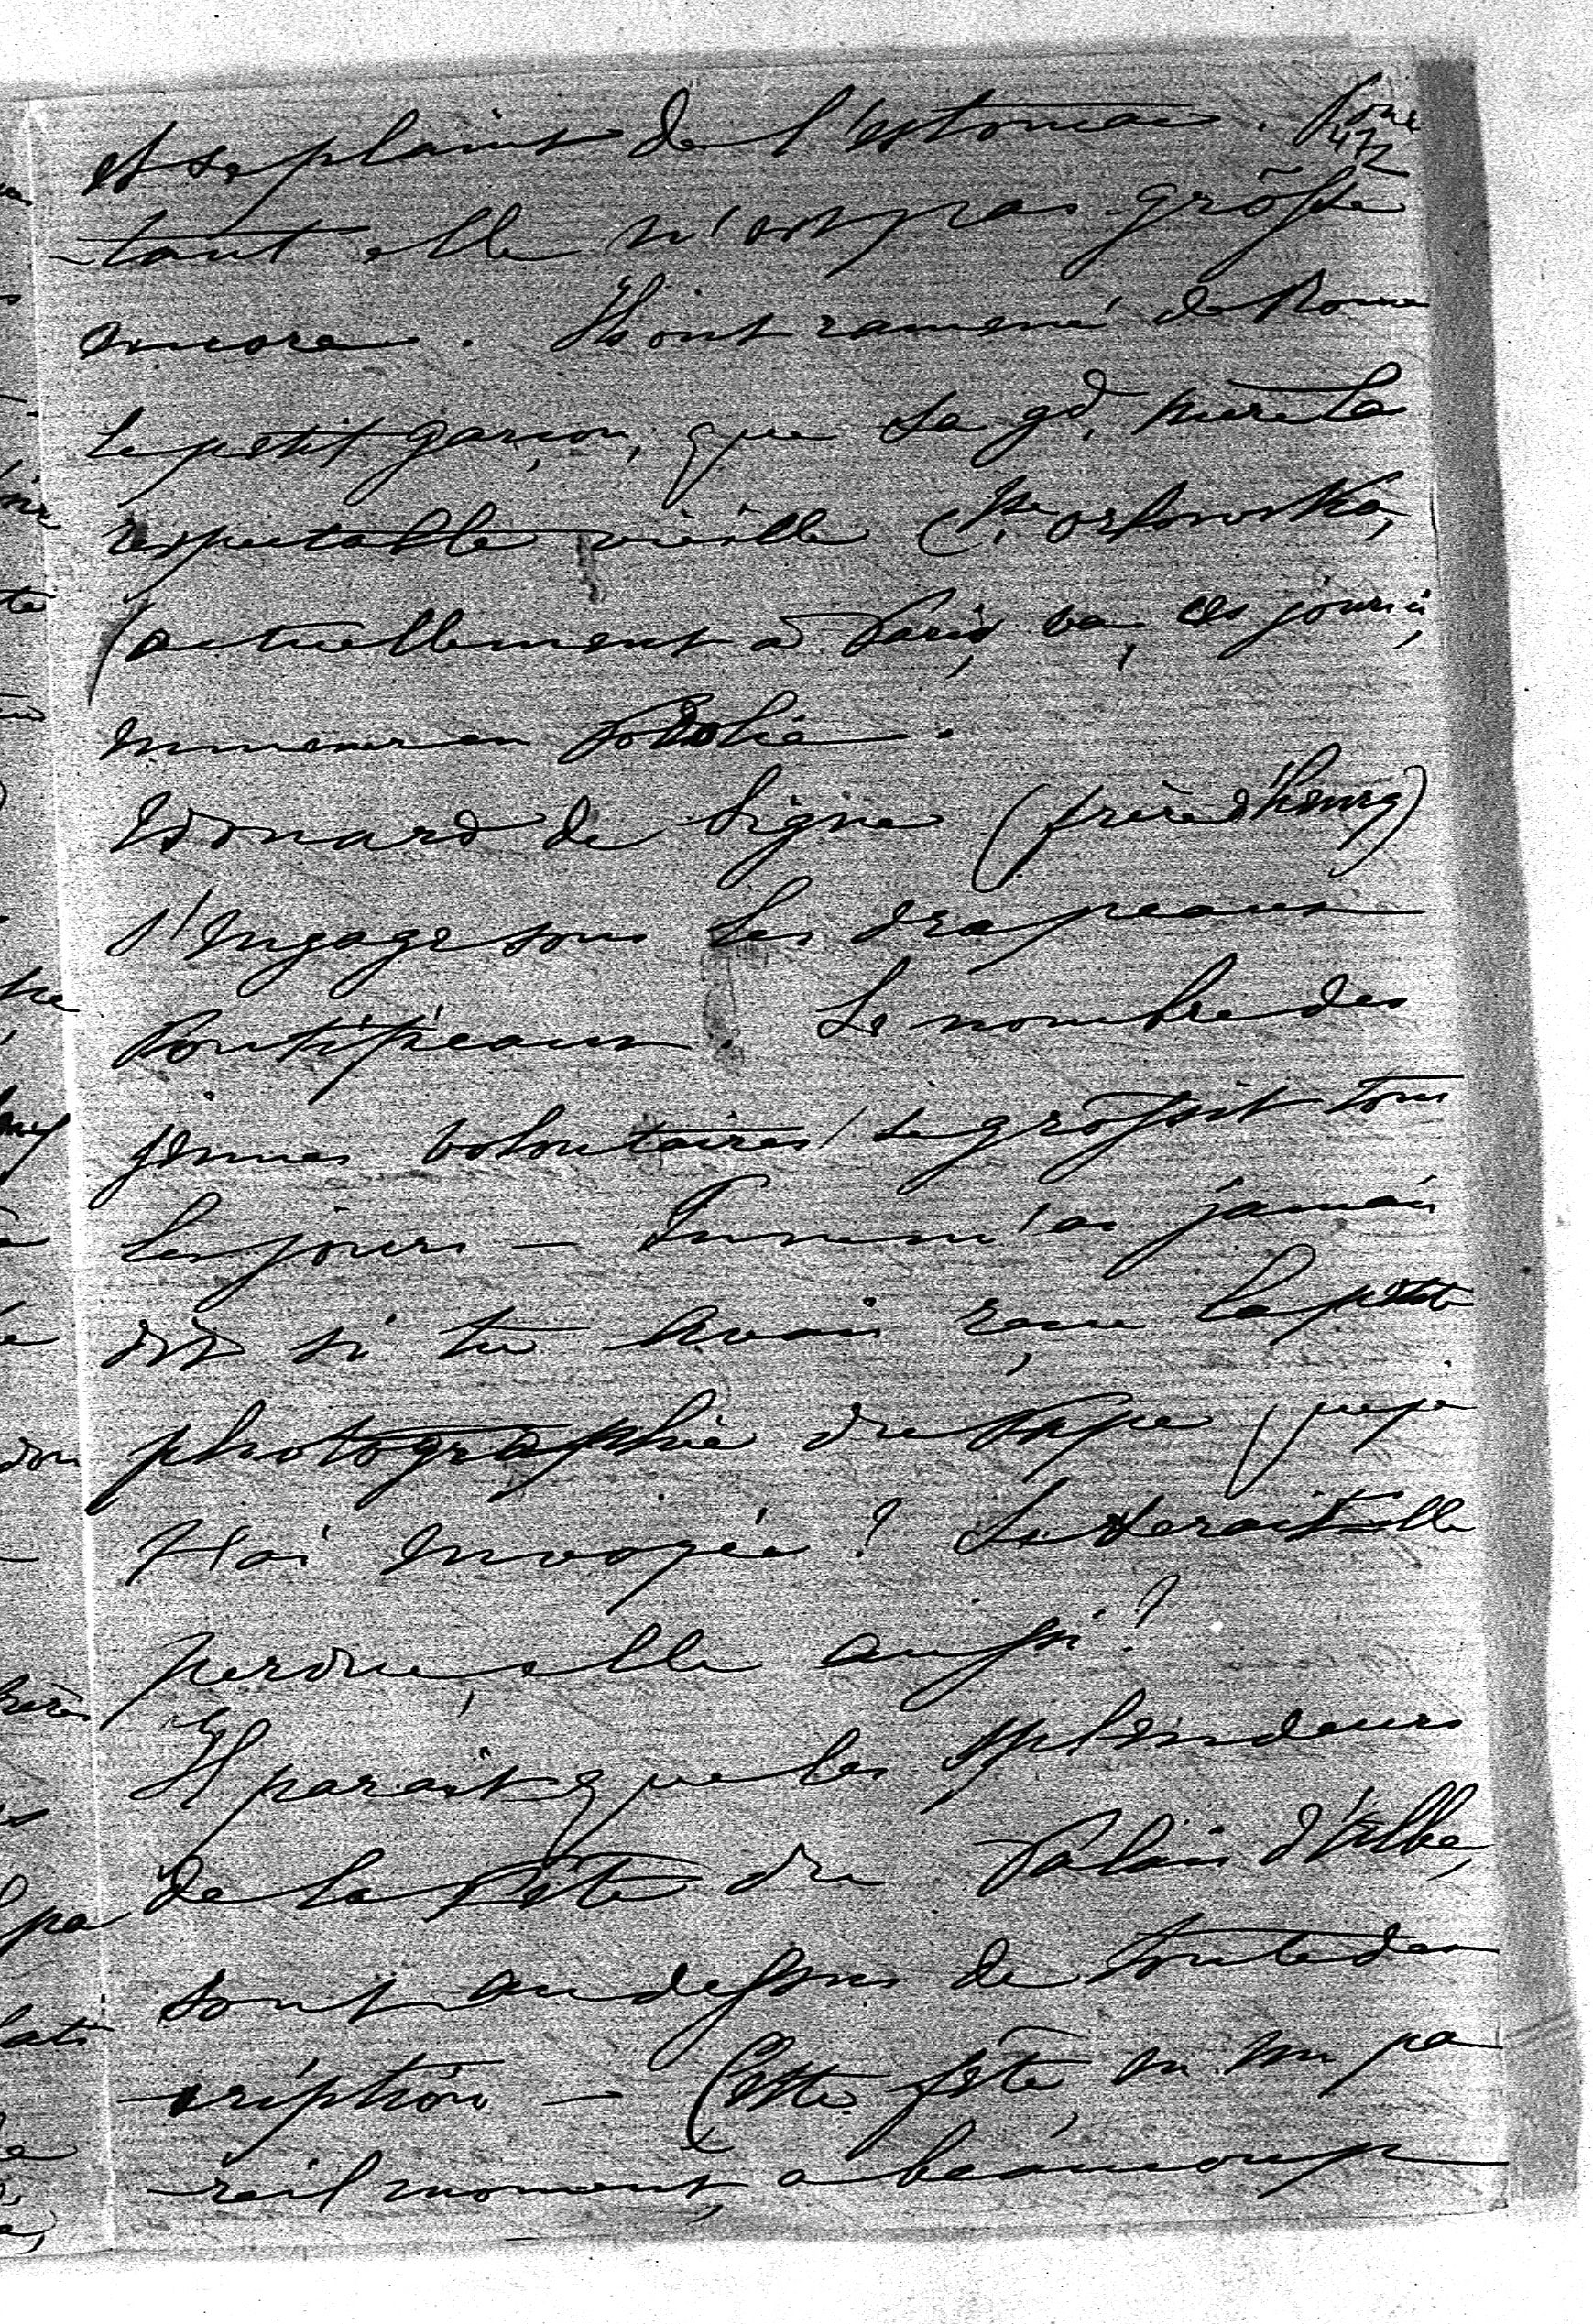 et se plaint de l'estomac. Pour
472
-tant elle n'est pas grosse
encore. Ils ont ramené de Rome
le petit garçon, que sa gd. mère la
respectable vieille Ctsse Orlowska,
(actuellement à Paris, va, ces jours ci,
emmener en Podolie.
Edouard de Ligne (frère d'Henry)
s'engage sous les drapeaux
Pontificaux. Le nombre des
jeunes volontaires se grossit tous
les jours — Tu ne m'as jamais
dit si tu avais reçu la petite
photographie du Pape que je
t'ai envoyée? Se serait elle
perdue, elle aussi?
Il parait que les splendeurs
de la Fête du Palais d'Albe,
sont au dessus de toute des
-cription — Cette fête, en un pa
-reil moment, a beaucoup